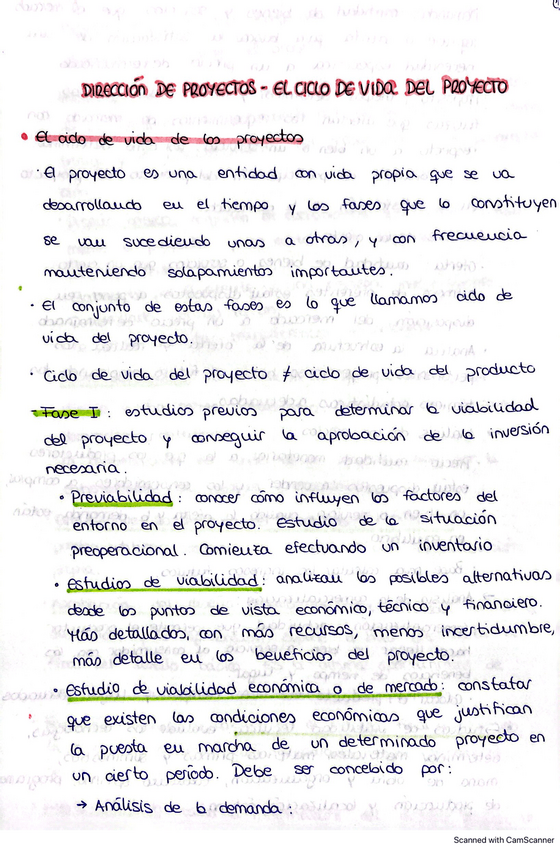 DIRECCIÓN DE PROYECTOS - EL CICLO DE VIDA DEL PROYECTO
• El ciclo de vida de los proyectos
· El proyecto es una entidad con vida propia que se va
desarrollando en el tiempo y las fases que lo constituyen
se van sucediendo unas a otras, y con frecuencia
manteniendo solapamientos importantes.
· El conjunto de estas fases es lo que llamamos ciclo de
vida del proyecto.
· Ciclo de vida del proyecto ≠ ciclo de vida del producto
- Fase I: estudios previos para determinar la viabilidad
del proyecto y conseguir la aprobación de la inversión
necesaria.
• Previabilidad: conocer cómo influyen los factores del
entorno en el proyecto. Estudio de la situación
preoperacional. Comienza efectuando un inventario
• Estudios de viabilidad: analizan las posibles alternativas
desde los puntos de vista económico, técnico y financiero.
Más detallados, con más recursos, menos incertidumbre,
más detalle en los beneficios del proyecto.
• Estudio de viabilidad económica o de mercado: constatar
que existen las condiciones económicas que justifican
la puesta en marcha de un determinado proyecto en
un cierto período. Debe ser concebido por:
→ Análisis de la demanda:
Scanned with CamScanner